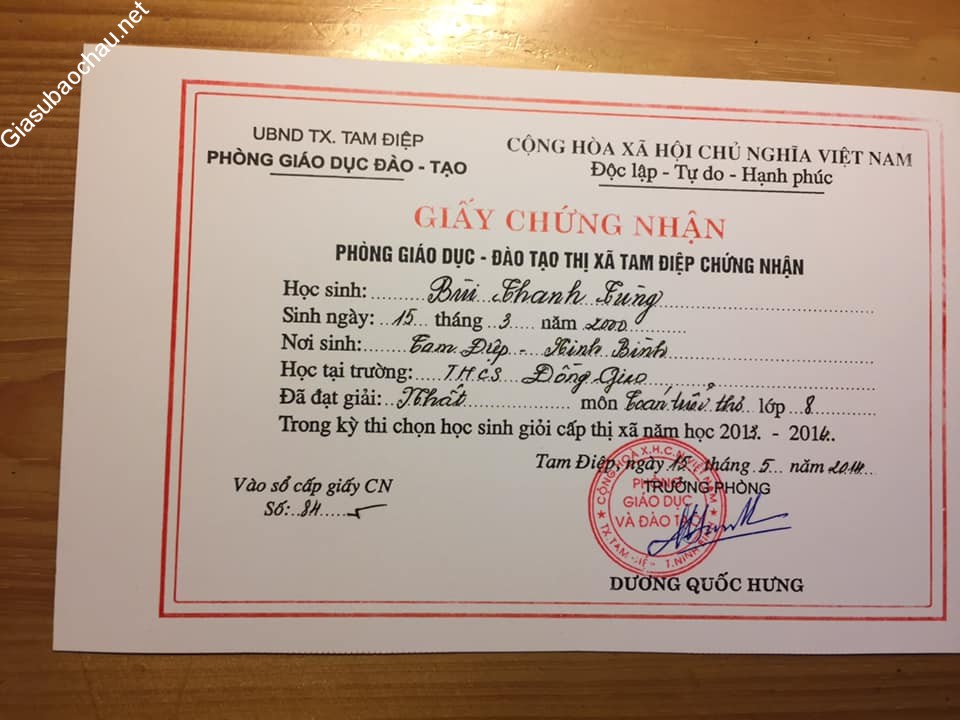 Giasubaochau.net
UBND TX. TAM ĐIỆP
PHÒNG GIÁO DỤC ĐÀO - TẠO
CỘNG HÒA XÃ HỘI CHỦ NGHĨA VIỆT NAM
Độc lập - Tự do - Hạnh phúc
GIẤY CHỨNG NHẬN
PHÒNG GIÁO DỤC - ĐÀO TẠO THỊ XÃ TAM ĐIỆP CHỨNG NHẬN
Học sinh: Bùi Thanh Tùng
Sinh ngày: 15 tháng 3 năm 2000
Nơi sinh: Tam Điệp - Ninh Bình
Học tại trường: THCS Đồng Giao
Đã đạt giải: Nhất môn Toán tuổi thơ lớp 8
Trong kỳ thi chọn học sinh giỏi cấp thị xã năm học 2013 - 2014.
Tam Điệp, ngày 15 tháng 5 năm 2014
Vào sổ cấp giấy CN
Số: 84
TRƯỞNG PHÒNG
CỘNG HÒA X.H.C.N VIỆT NAM
PHÒNG
GIÁO DỤC
VÀ ĐÀO TẠO
DƯƠNG QUỐC HƯNG